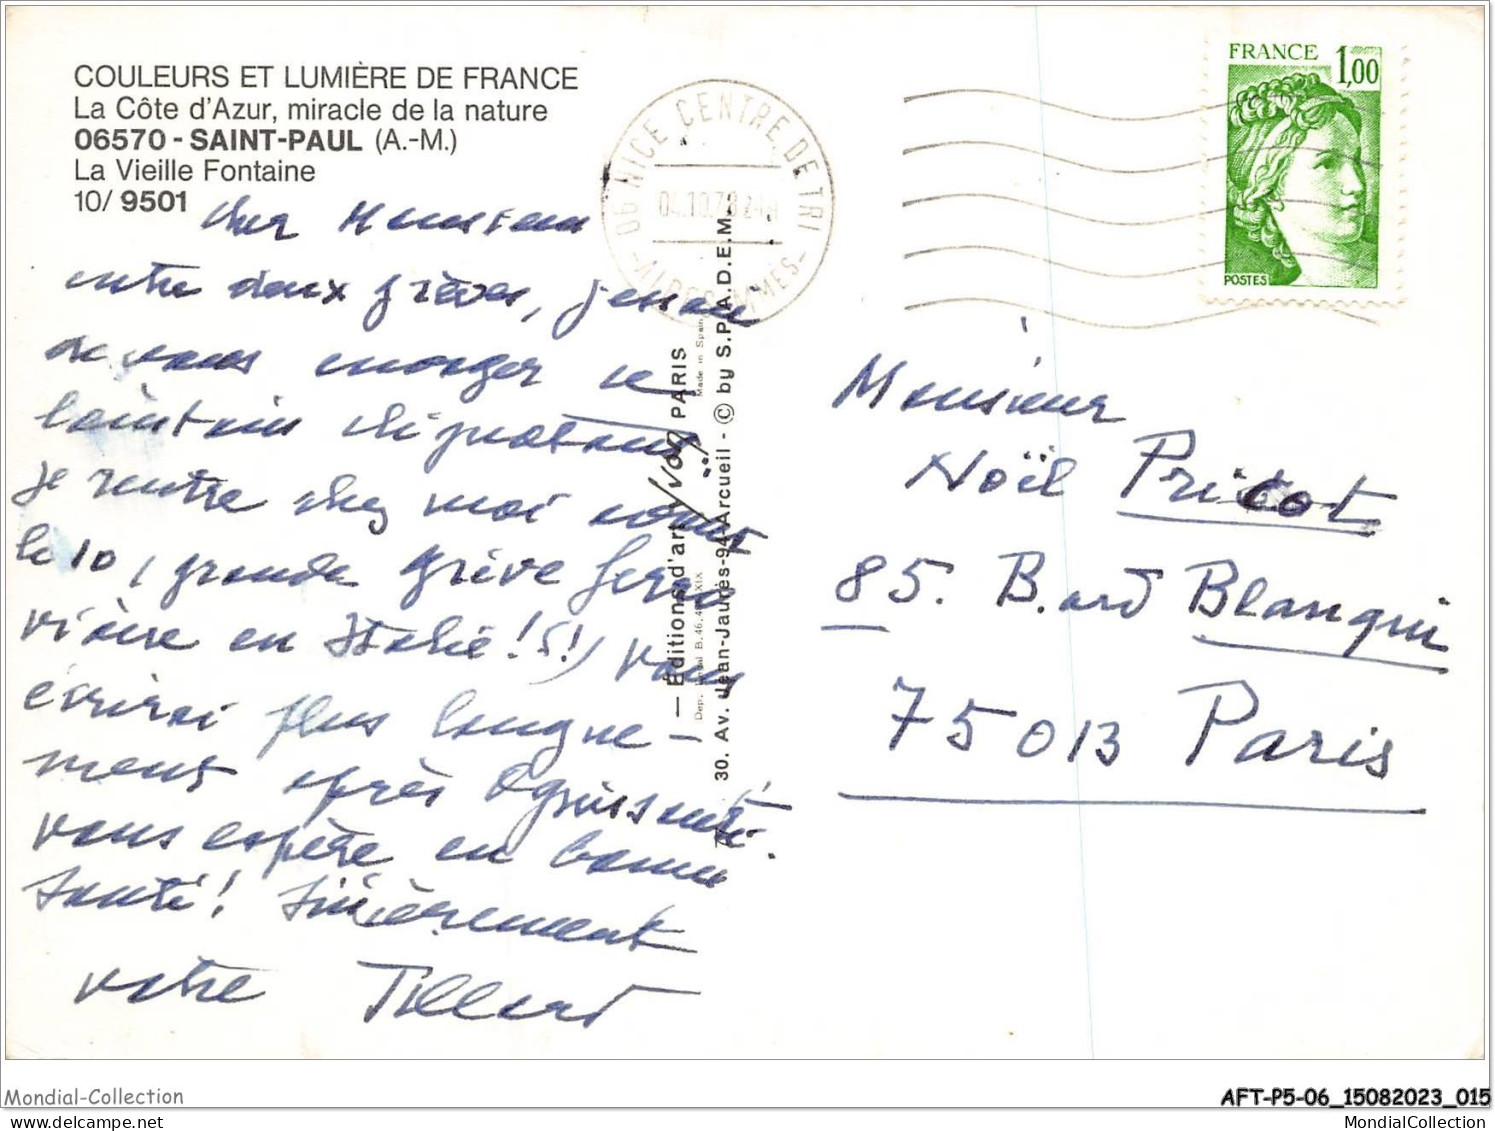 COULEURS ET LUMIÈRE DE FRANCE
La Côte d'Azur, miracle de la nature
06570 - SAINT-PAUL (A.-M.)
La Vieille Fontaine
10/ 9501
Cher Monsieur
entre deux grèves,
de vous
lointain
je rentre chez moi avant
le 10, grande grève ferro
viaire en Italie!(!) vous
écrirai plus longue-
ment après
vous espère en bonne
santé! Sincèrement
votre Tillard
— Éditions d'art Yvon PARIS
Made in Spain
30. Av. Jean-Jaurès-94-Arcueil - © by S.P.A.D.E.M.
06 NICE CENTRE DE TRI
04.10.78 24H
- ALPES MMES -
FRANCE 1,00
POSTES
Monsieur
Noël Pricot
85. B.ard Blanqui
75013 Paris
Mondial-Collection
AFT-P5-06_15082023_015
MondialCollection